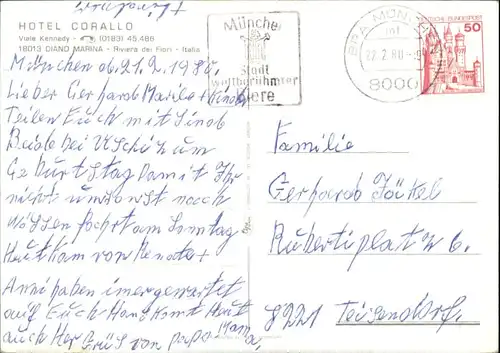 HOTEL CORALLO
Viale Kennedy - (0183) 45.486
18013 DIANO MARINA - Riviera dei Fiori - Italia
München
Stadt
weltberühmter
Biere
BPA MÜNCHEN
27.2.80
8000
DEUTSCHE BUNDESPOST
50
München 21.2.1980.
Lieber Gerhard Maria + Kinder
Teilen Euch mit sind
Beide bei Uschi zum
Geburtstag Damit Ihr
nicht umsonst nach
fahrt am Sonntag
Heut kam von Renate +
Anni haben immer gewartet
auf Euch Hans kommt Heut
auch Her Grüß von papa Mama
Familie
Gerhard Jäckel
Rupertiplatz 6.
8221 Teisendorf.